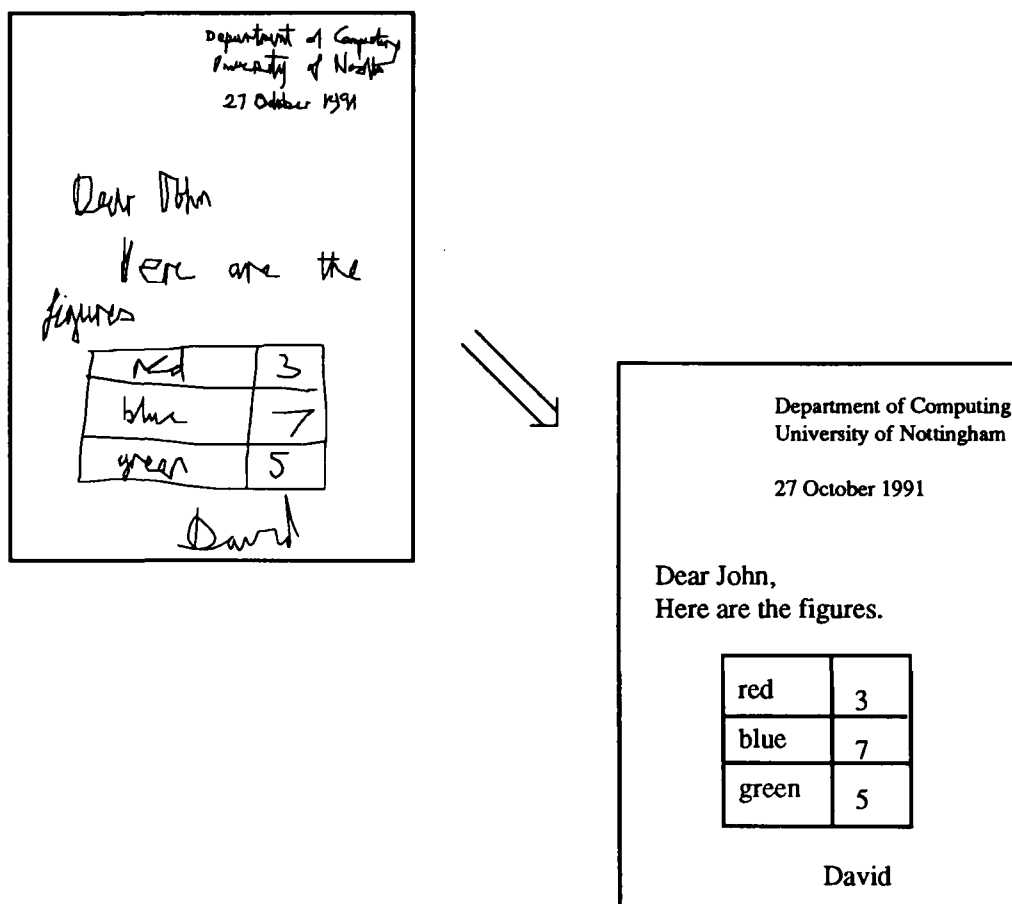 Department of Computing
University of Notts
27 October 1991
Dear John
Here are the
figures
red 3
blue 7
green 5
David
Department of Computing
University of Nottingham
27 October 1991
Dear John,
Here are the figures.
red 3
blue 7
green 5
David